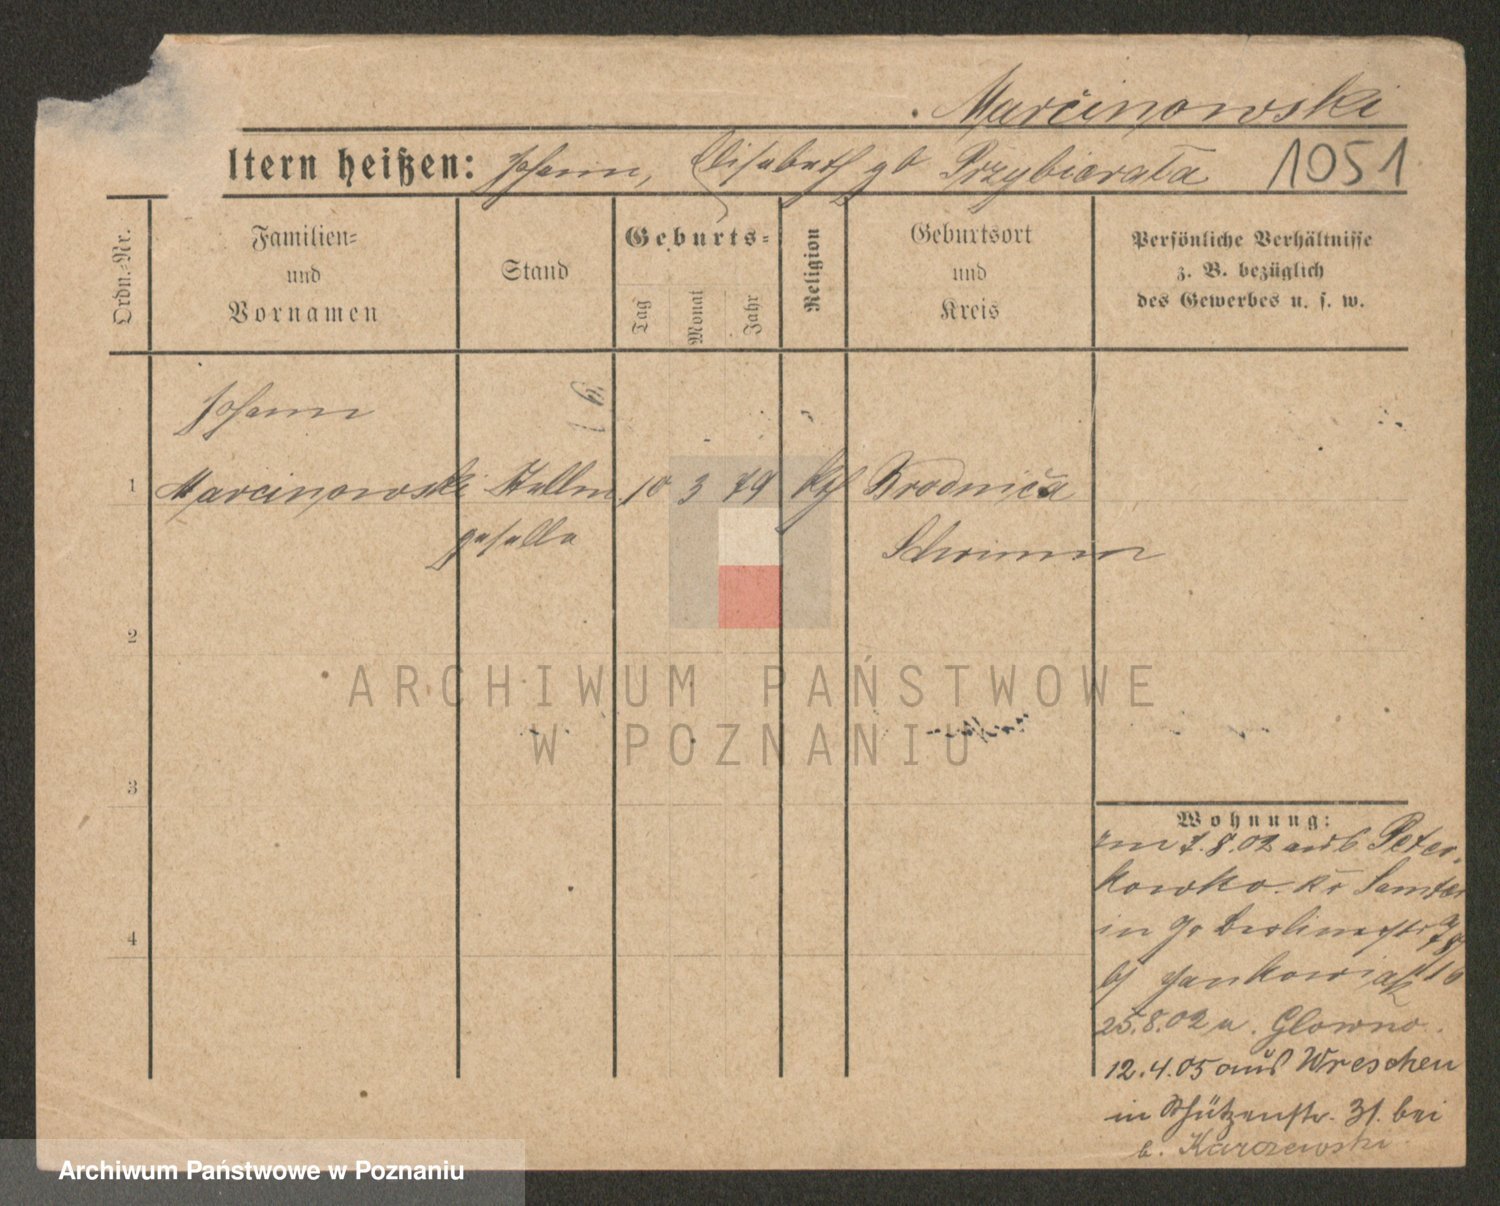 Marcinowski
ltern heißen: Johann, Elisabeth gb Przybierała 1051
Ordn.-Nr.
Familien-
und
Vornamen
Stand
Geburts-
Tag
Monat
Jahr
Religion
Geburtsort
und
Kreis
Persönliche Verhältnisse
z. B. bezüglich
des Gewerbes u. s. w.
Johann
1 Marcinowski 10 3 79 kth Brodnica
geselle Schrimm
2
3
4
Wohnung:
7.8.02 aus Peter-
kowko. Kr Samter
in gr Berlinerstr
b/ Jankowiak
25.8.02 a. Glowno.
12.4.05 aus Wreschen
in Schützenstr. 31. bei
b. Karczewski
ARCHIWUM PAŃSTWOWE
W POZNANIU
Archiwum Państwowe w Poznaniu